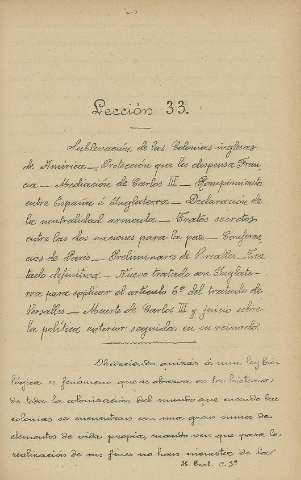 Lección 33.
Sublevación de las Colonias inglesas
de América — Protección que les dispensa Fran-
cia — Mediación de Carlos III — Rompimiento
entre España é Inglaterra — Declaración de
la neutralidad armada — Tratos secretos
entre las dos naciones para la paz — Conferen-
cias de París — Preliminares de Versalles — Tra-
tado definitivo — Nuevo tratado con Inglate-
rra para explicar el artículo 6º del tratado de
Versalles — Muerte de Carlos III y juicio sobre
la política exterior seguida en su reinado.
Obedeciendo quizás á una ley bio-
lógica es fenómeno que se observa en la historia
de toda la colonización del mundo que cuando las
colonias se encuentran con una gran suma de
elementos de vida propia, cuando ven que para la
realización de sus fines no han menester de la